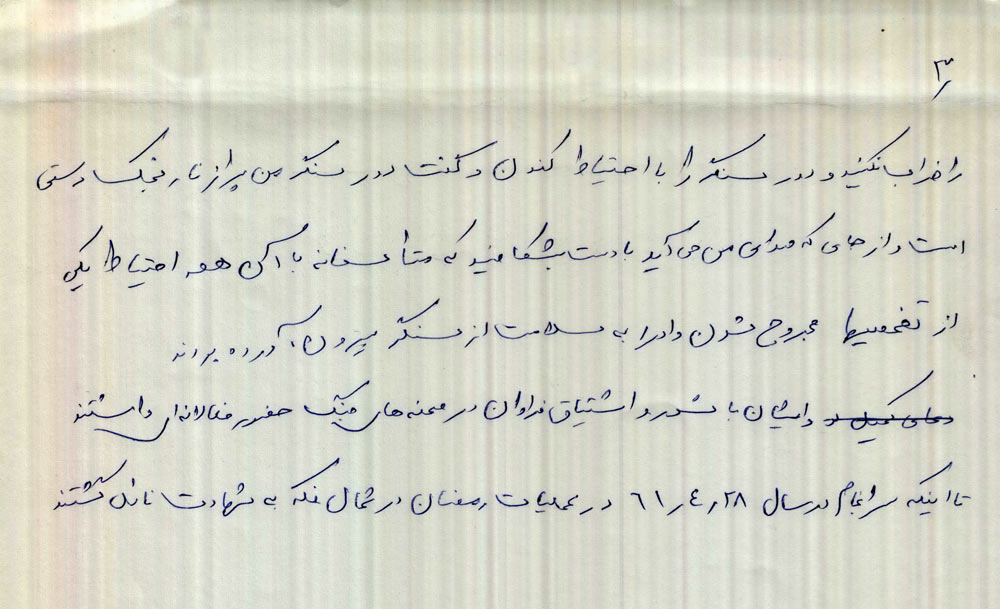 ۳
را خراب نکنید و دور سنگر را با احتیاط کندن و گفت دور سنگر من پر از نارنجک دستی
است و از جای که صدای من می آید با دست بشکافید که متأسفانه با آن همه احتیاط یکی
از تخصصیها مجروح شدن و او را به سلامت از سنگر بیرون آورده بودند
و ایشان با شور و اشتیاق فراوان در صحنه های جنگ حضور فعالانه ای داشتند
تا اینکه سرانجام در سال ۶۱٫۴٫۲۸ در عملیات رمضان در شمال فکه به شهادت نائل گشتند